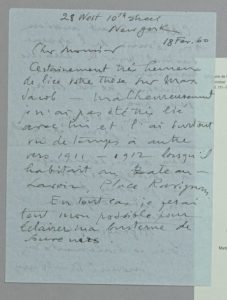 28 West 10th street
New York
18 Fev. 60
Cher Monsieur
Certainement très heureux
de lire votre thèse sur Max
Jacob — malheureusement
je n'ai pas été très lié
avec lui et l'ai surtout
vu de temps à autre
vers 1911 - 1912 lorsqu'il
habitait au Bateau-
Lavoir, Place Ravignan
En tout cas je ferai
tout mon possible pour
éclairer ma lanterne de
souvenirs